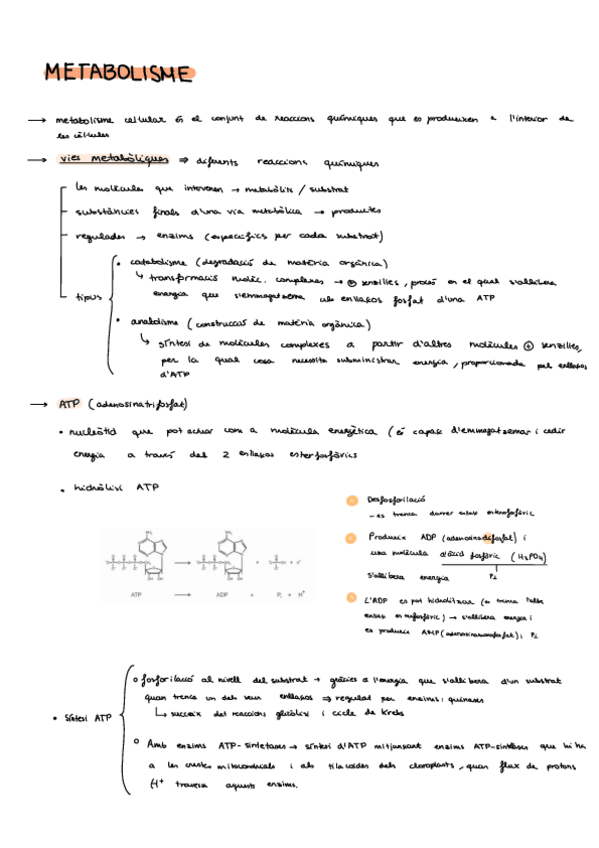 METABOLISME
→ metabolisme cel·lular és el conjunt de reaccions químiques que es produeixen a l'interior de
les cèl·lules
→ vies metabòliques ⇒ diferents reaccions químiques
les molècules que intervenen → metabòlits / substrat
substàncies finals d'una via metabòlica → productes
regulades → enzims (específics per cada substrat)
tipus
• catabolisme (degradació de matèria orgànica)
↳ transformació molèc. complexes → ⊕ senzilles, procés en el qual s'allibera
energia que s'emmagatzema als enllaços fosfat d'una ATP
• anabolisme (construcció de matèria orgànica)
↳ síntesi de molècules complexes a partir d'altres molècules ⊕ senzilles,
per la qual cosa necessita subministrar energia, proporcionada pels enllaços
d'ATP
→ ATP (adenosinatrifosfat)
• nucleòtid que pot actuar com a molècula energètica (és capaç d'emmagatzemar i cedir
energia a través dels 2 enllaços esterfosfòrics
• hidròlisi ATP
Desfosforilació
- es trenca darrer enllaç esterofosfòric
Produeix ADP (adenosinadifosfat) i
una molècula d'àcid fosfòric (H3PO4)
s'allibera energia Pi
L'ADP es pot hidrolitzar (es trenca l'altre
enllaç esterfosfòric) → s'allibera energia i
es produeix AMP (adenosinamonofosfat) i Pi
ATP → ADP + Pi + H+
• Síntesi ATP
o fosforilació al nivell del substrat → gràcies a l'energia que s'allibera d'un substrat
quan trenca un dels seus enllaços ⇒ regulat per enzims: quinases
↳ succeix del reaccions glicòlisi i cicle de Krebs
o Amb enzims ATP-sintetases → síntesi d'ATP mitjançant enzims ATP-sintases que hi ha
a les crestes mitocondrials i als tilacoides dels cloroplasts, quan flux de protons
H+ travessa aquests enzims.